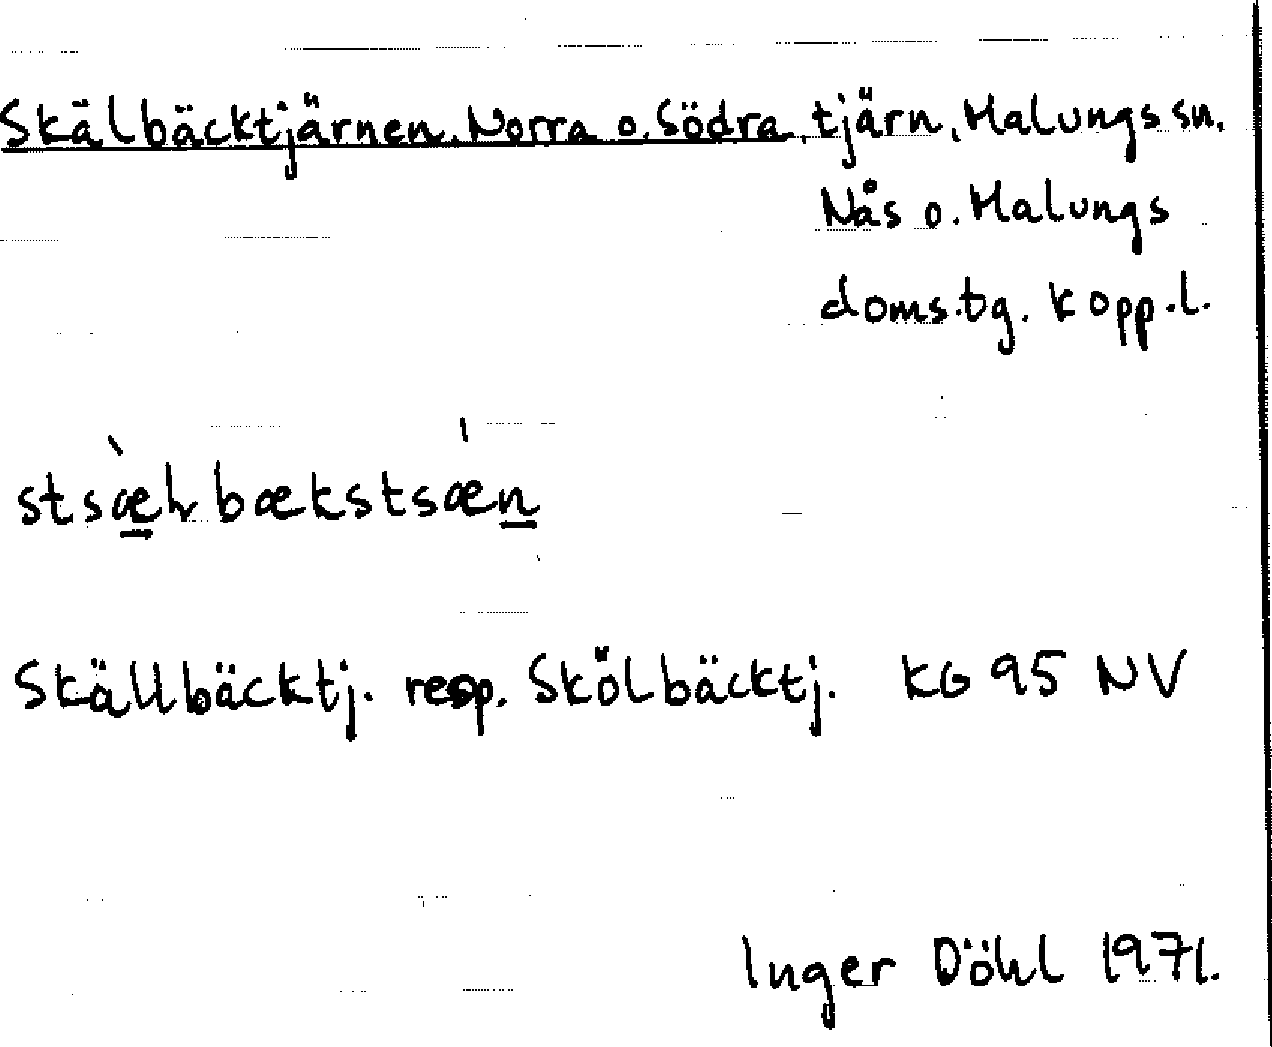 Skälbäcktjärnen, Norra o. Södra, tjärn, Malungs sn.
Nås o. Malungs
doms.tg. Kopp.l.
stsæ̲̀lbækstsǽn̲
Skällbäcktj. resp. Skölbäcktj. KG 95 NV
Inger Döhl 1971.